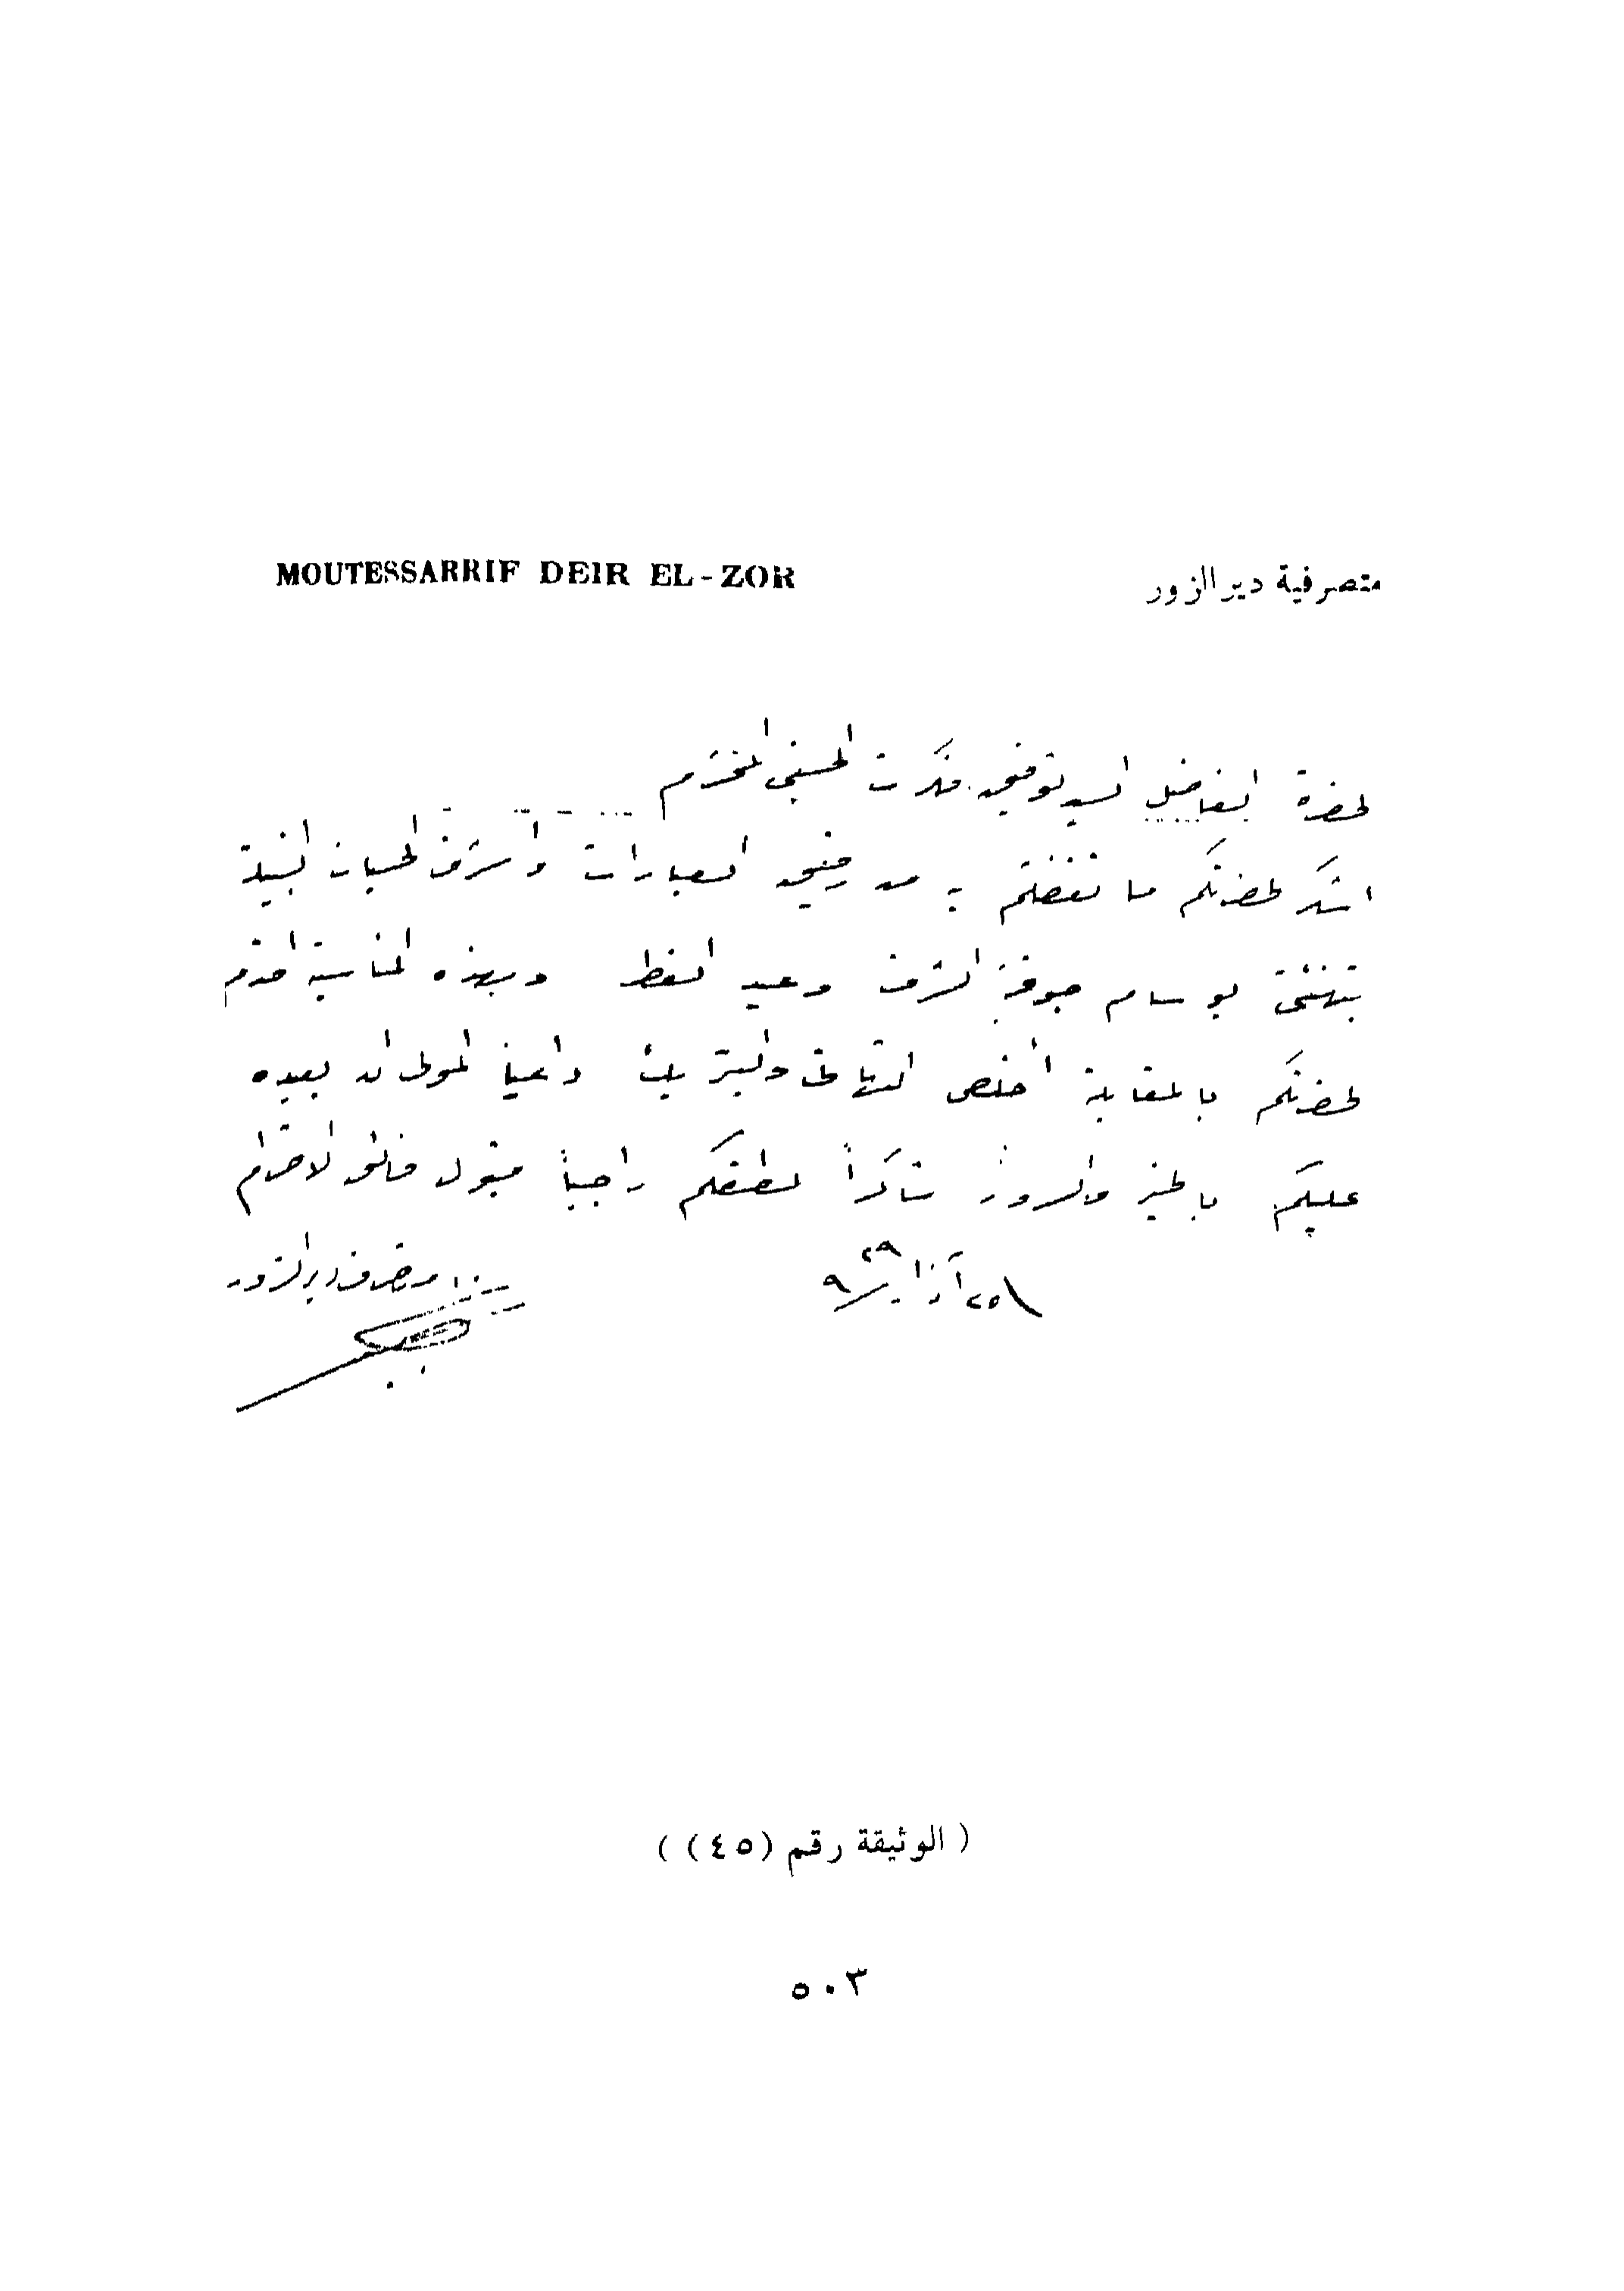 MOUTESSARRIF DEIR EL-ZOR
متصرفية دير الزور
لحضرة الفاضل السيد توفيق فكرت الحسيني المحترم
اشكر لحضرتكم ما تفضلتم به من رقيق العبارات وأشرف الحسيات النبيلة
بتهنئتي بوسام جوقة الشرف وعيد الفطر وبهذه المناسبة اقدم
لحضرتكم بالمقابلة أخلص التهاني والتبريك داعياً المولى ان يعيده
عليكم بالخير والسرور شاكراً لطفكم راجياً قبول فائق الاحترام
٢٥ آذار ٩٢٩
متصرف دير الزور
( الوثيقة رقم (٤٥) )
٥٠٣